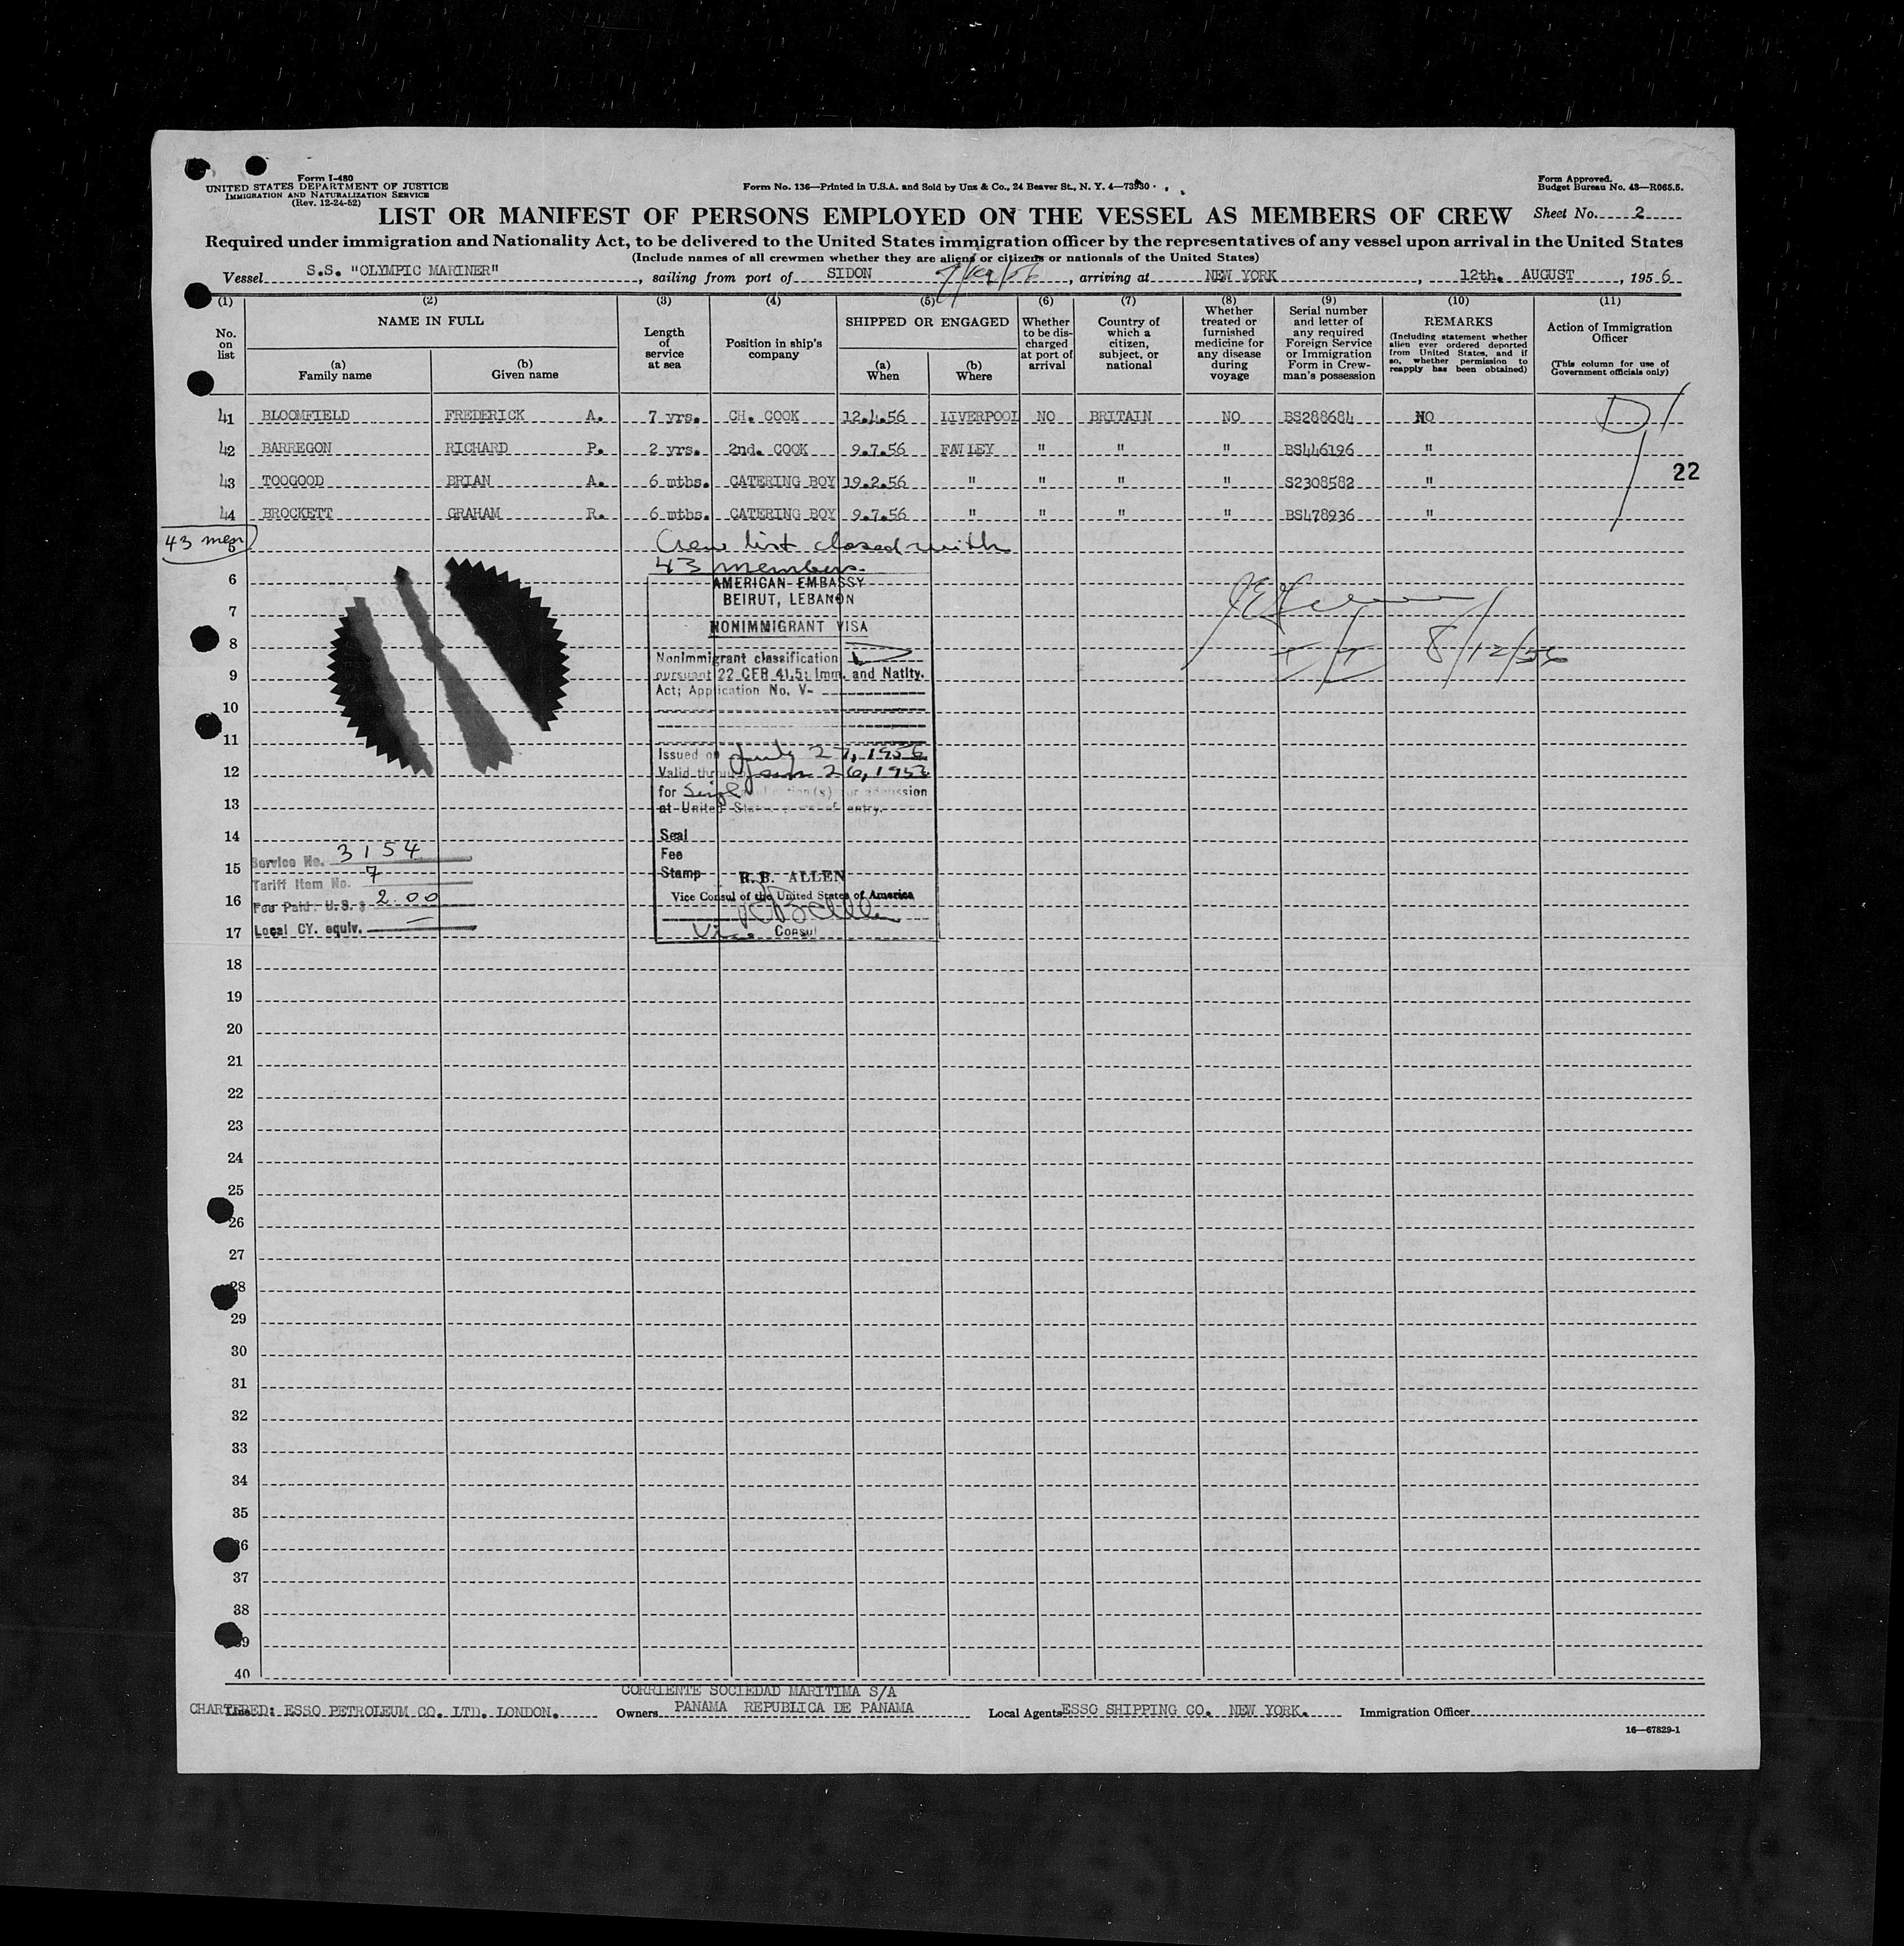 Form I-480
UNITED STATES DEPARTMENT OF JUSTICE
IMMIGRATION AND NATURALIZATION SERVICE
(Rev. 12-24-52)
Form No. 136—Printed in U.S.A. and Sold by Unz & Co., 24 Beaver St., N. Y. 4—73930
Form Approved.
Budget Bureau No. 43—R065.5.
LIST OR MANIFEST OF PERSONS EMPLOYED ON THE VESSEL AS MEMBERS OF CREW
Sheet No. 2
Required under immigration and Nationality Act, to be delivered to the United States immigration officer by the representatives of any vessel upon arrival in the United States
(Include names of all crewmen whether they are aliens or citizens or nationals of the United States)
Vessel S.S. "OLYMPIC MARINER", sailing from port of SIDON, arriving at NEW YORK, 12th. AUGUST, 1956
(1) (2) (3) (4) (5) (6) (7) (8) (9) (10) (11)
No. on list
NAME IN FULL
(a) Family name
(b) Given name
Length of service at sea
Position in ship's company
SHIPPED OR ENGAGED
(a) When
(b) Where
Whether to be discharged at port of arrival
Country of which a citizen, subject, or national
Whether treated or furnished medicine for any disease during voyage
Serial number and letter of any required Foreign Service or Immigration Form in Crewman's possession
REMARKS
(Including statement whether alien ever ordered deported from United States, and if so, whether permission to reapply has been obtained)
Action of Immigration Officer
(This column for use of Government officials only)
41 BLOOMFIELD FREDERICK A. 7 yrs. CH. COOK 12.4.56 LIVERPOOL NO BRITAIN NO BS288684 NO D1
42 BARREGON RICHARD P. 2 yrs. 2nd. COOK 9.7.56 FAWLEY " " " BS446196 "
22
43 TOOGOOD BRIAN A. 6 mths. CATERING BOY 19.2.56 " " " " S2308582 "
44 BROCKETT GRAHAM R. 6 mths. CATERING BOY 9.7.56 " " " " BS478936 "
43 men
5
Crew list closed with
43 members.
6
AMERICAN EMBASSY
BEIRUT, LEBANON
7
NONIMMIGRANT VISA
8
Nonimmigrant classification D
8/12/56
9
pursuant 22 CFR 41.5; Imm. and Natlty.
Act; Application No. V-
10
11
Issued on July 27, 1956
12
Valid through Jan 26, 1957
for Single application(s) for admission
13
at United States port of entry.
14
Seal
Fee
Stamp
R.B. ALLEN
Vice Consul of the United States of America
Vice Consul
Service No. 3154
15
Tariff Item No. 7
16
Fee Paid: U.S. $ 2.00
Local CY. equiv. —
17
18
19
20
21
22
23
24
25
26
27
28
29
30
31
32
33
34
35
36
37
38
39
40
CHARTERED: ESSO PETROLEUM CO. LTD. LONDON.
Owners CORRIENTE SOCIEDAD MARITIMA S/A
PANAMA REPUBLICA DE PANAMA
Local Agents ESSO SHIPPING CO. NEW YORK.
Immigration Officer
16—67829-1